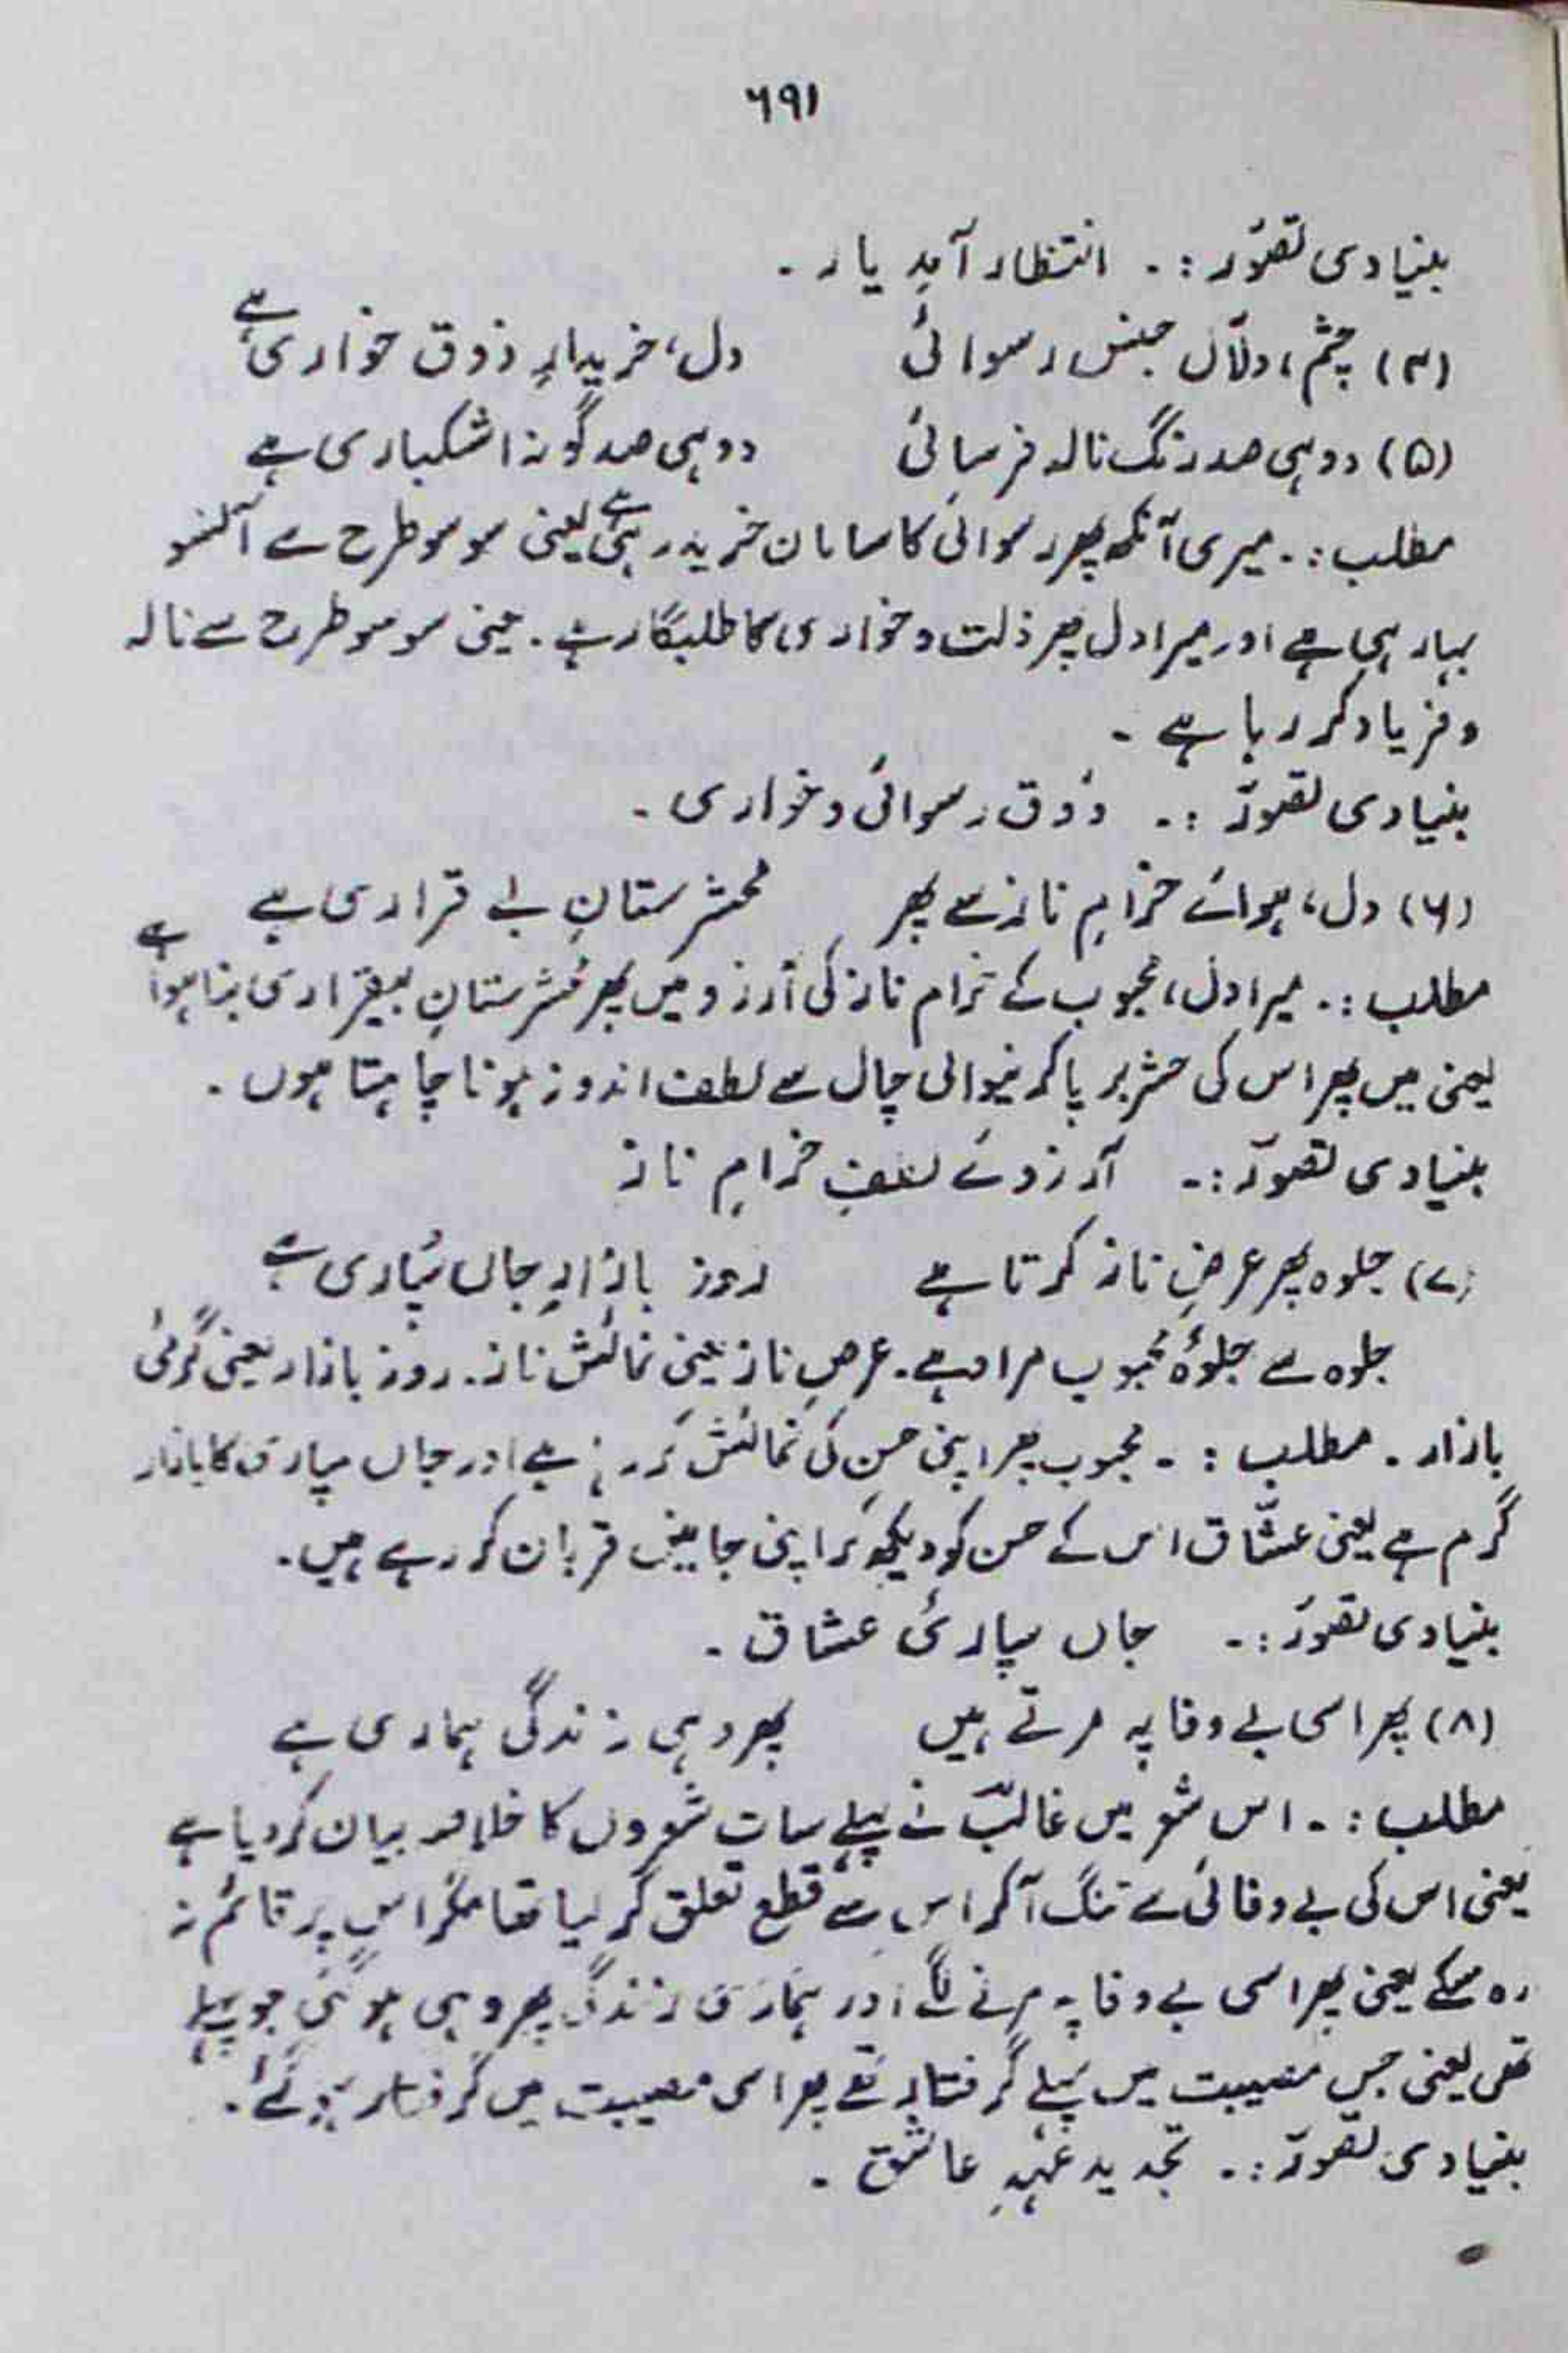 ۶۹۱
بنیادی تصوّر :۔ انتظار آمدِ یار ۔
(۴) چشم، دلّال جنس رسوائی دل، خریدارِ ذوق خواری ہے
(۵) دوہی صد رنگ نالہ فرسائی دوہی صد گونہ اشکباری ہے
مطلب :۔ میری آنکھ پھر رسوائی کا سامان خرید رہی ہے یعنی سو سو طرح سے آنسو
بہا رہی ہے اور میرا دل پھر ذلت و خواری کا طلبگار ہے ۔ یعنی سو سو طرح سے نالہ
و فریاد کر رہا ہے ۔
بنیادی تصوّر :۔ ذوق رسوائی و خواری ۔
(۶) دل، ہوائے خرامِ ناز سے پھر محشرستانِ بے قراری ہے
مطلب :۔ میرا دل، محبوب کے خرام ناز کی آرزو میں پھر محشرستانِ بیقراری بنا ہوا ہے
یعنی میں پھر اس کی حشر برپا کرنیوالی چال سے لطف اندوز ہونا چاہتا ہوں ۔
بنیادی تصوّر :۔ آرزوئے لطفِ خرامِ ناز
(۷) جلوہ پھر عرضِ ناز کرتا ہے روز بازارِ جاں سپاری ہے
جلوہ سے جلوۂ محبوب مراد ہے ۔ عرضِ ناز یعنی نمائش ناز ۔ روز بازار یعنی گرمئی
بازار ۔ مطلب :۔ محبوب پھر اپنی حسن کی نمائش کر رہا ہے اور جاں سپاری کا بازار
گرم ہے یعنی عشّاق اس کے حسن کو دیکھ کر اپنی جانیں قربان کر رہے ہیں ۔
بنیادی تصوّر :۔ جاں سپاریٔ عشاق ۔
(۸) پھر اسی بے وفا پہ مرتے ہیں پھر وہی زندگی ہماری ہے
مطلب :۔ اس شعر میں غالبؔ نے پہلے سات شعروں کا خلاصہ بیان کر دیا ہے
یعنی اس کی بے وفائی سے تنگ آ کر اس سے قطع تعلق کر لیا تھا مگر اس پر قائم نہ
رہ سکے یعنی پھر اسی بے وفا پہ مرنے لگے اور ہماری زندگی پھر وہی ہو گئی جو پہلے
تھی یعنی جس مصیبت میں پہلے گرفتار تھے پھر اسی مصیبت میں گرفتار ہو گئے ۔
بنیادی تصوّر :۔ تجدید عہدِ عاشق ۔